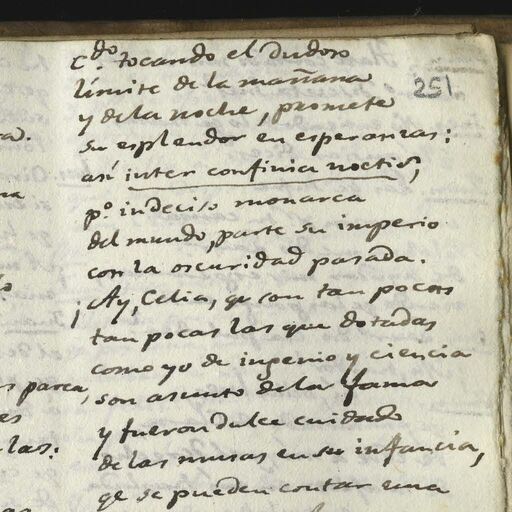 251
C.do tocando el dudoso
límite de la mañana
y de la noche, promete
su esplendor en esperanzas;
así inter confinia noctis,
p.o indeciso monarca
del mundo, parte su imperio
con la oscuridad pasada.
¡Ay, Celia, qe son tan pocas
tan pocas las que dotadas
como yo de ingenio y ciencia
son asunto de la fama
y fueron dulce cuidado
de las musas en su infancia,
qe se pueden contar una
s parca,
es
las: